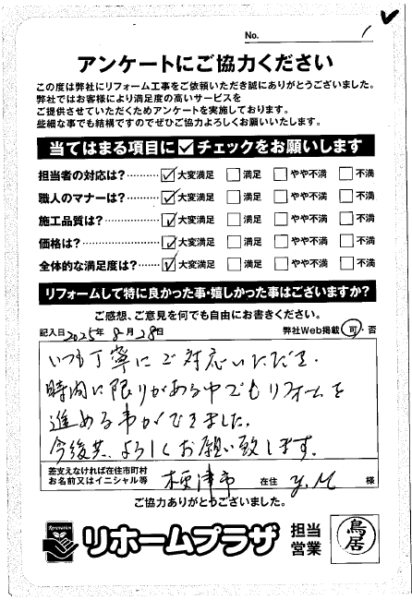 No. 1
アンケートにご協力ください
この度は弊社にリフォーム工事をご依頼いただき誠にありがとうございました。
弊社ではお客様により満足度の高いサービスを
ご提供させていただくためアンケートを実施しております。
些細な事でも結構ですのでぜひご協力よろしくお願いいたします。
当てはまる項目に✓チェックをお願いします
担当者の対応は?………☑大変満足 □満足 □やや不満 □不満
職人のマナーは?………☑大変満足 □満足 □やや不満 □不満
施工品質は?………☑大変満足 □満足 □やや不満 □不満
価格は?………☑大変満足 □満足 □やや不満 □不満
全体的な満足度は?……☑大変満足 □満足 □やや不満 □不満
リフォームして特に良かった事・嬉しかった事はございますか?
ご感想、ご意見を何でも自由にお書きください。
記入日 2025年 8月 28日 弊社Web掲載 可・否
いつも丁寧にご対応いただき、
時間に限りがある中でもリフォームを
進める事ができました。
今後共、よろしくお願い致します。
差支えなければ在住市町村
お名前又はイニシャル等 木更津市 在住 y.M 様
ご協力ありがとうございました。
リホームプラザ 担当営業 鳥居